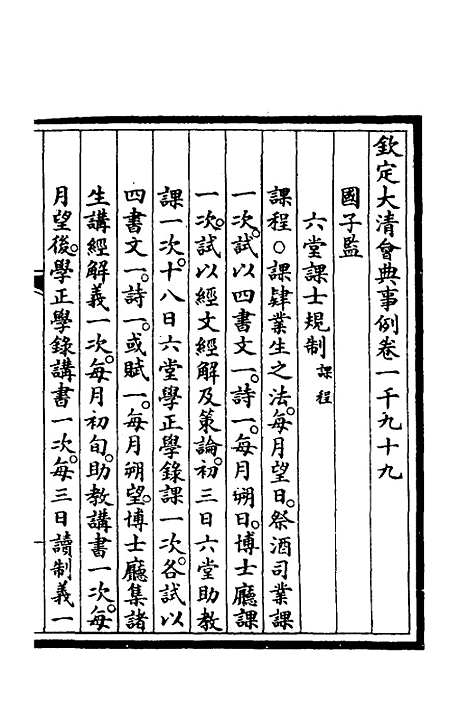 欽定大清會典事例卷一千九十九
國子監
六堂課士規制 課程
課程○課肄業生之法。每月望日。祭酒司業課
一次。試以四書文一。詩一。每月朔日。博士廳課
一次。試以經文經解及策論。初三日六堂助教
課一次。十八日六堂學正學錄課一次。各試以
四書文一。詩一。或賦一。每月朔望。博士廳集諸
生講經解義一次。每月初旬。助教講書一次。每
月望後。學正學錄講書一次。每三日讀制義一